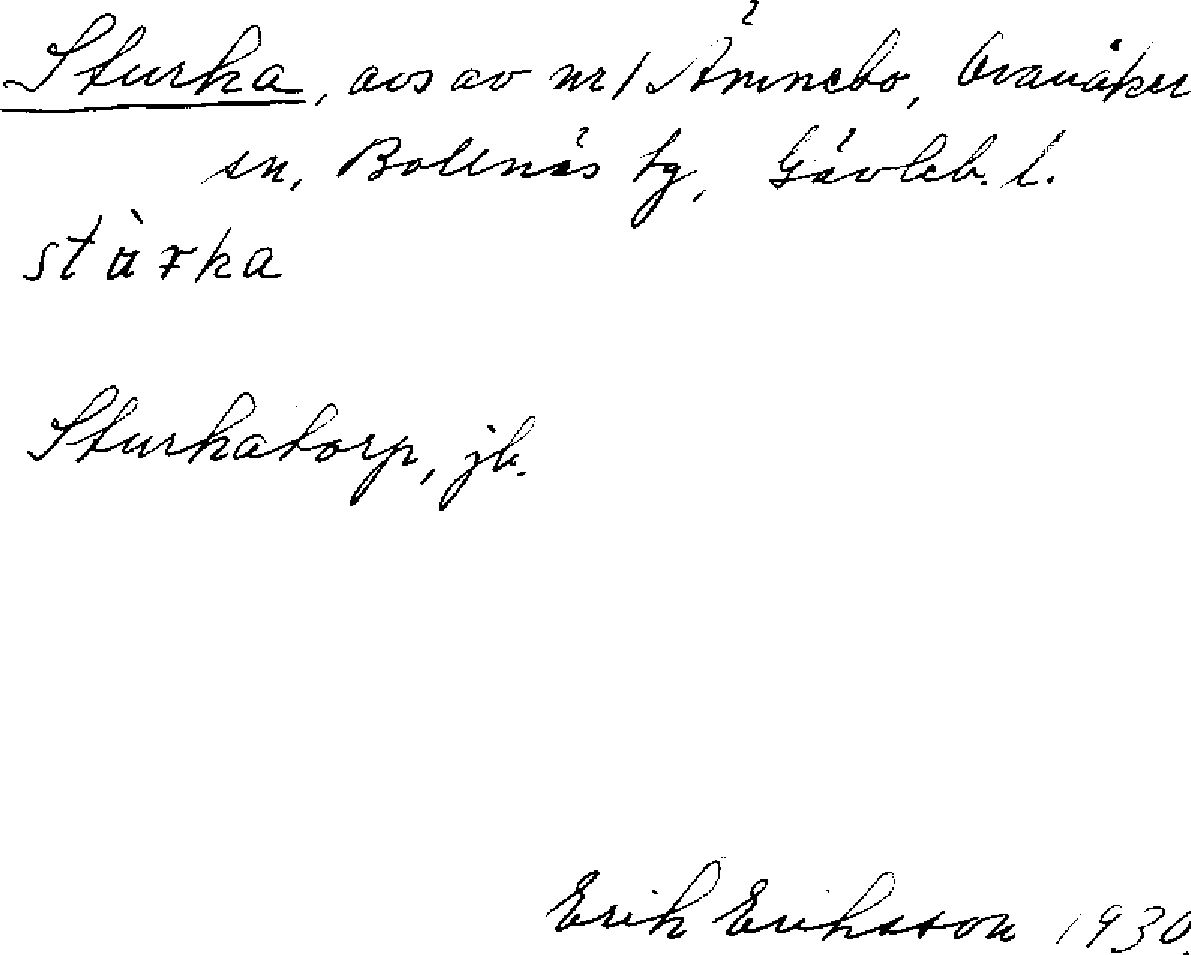 Sturka, avs av nr 1 Ämnebo, Ovanåker
sn, Bollnäs tg, Gävleb. l.
stùrka
Sturkatorp, jb.
Erik Eriksson 1930.